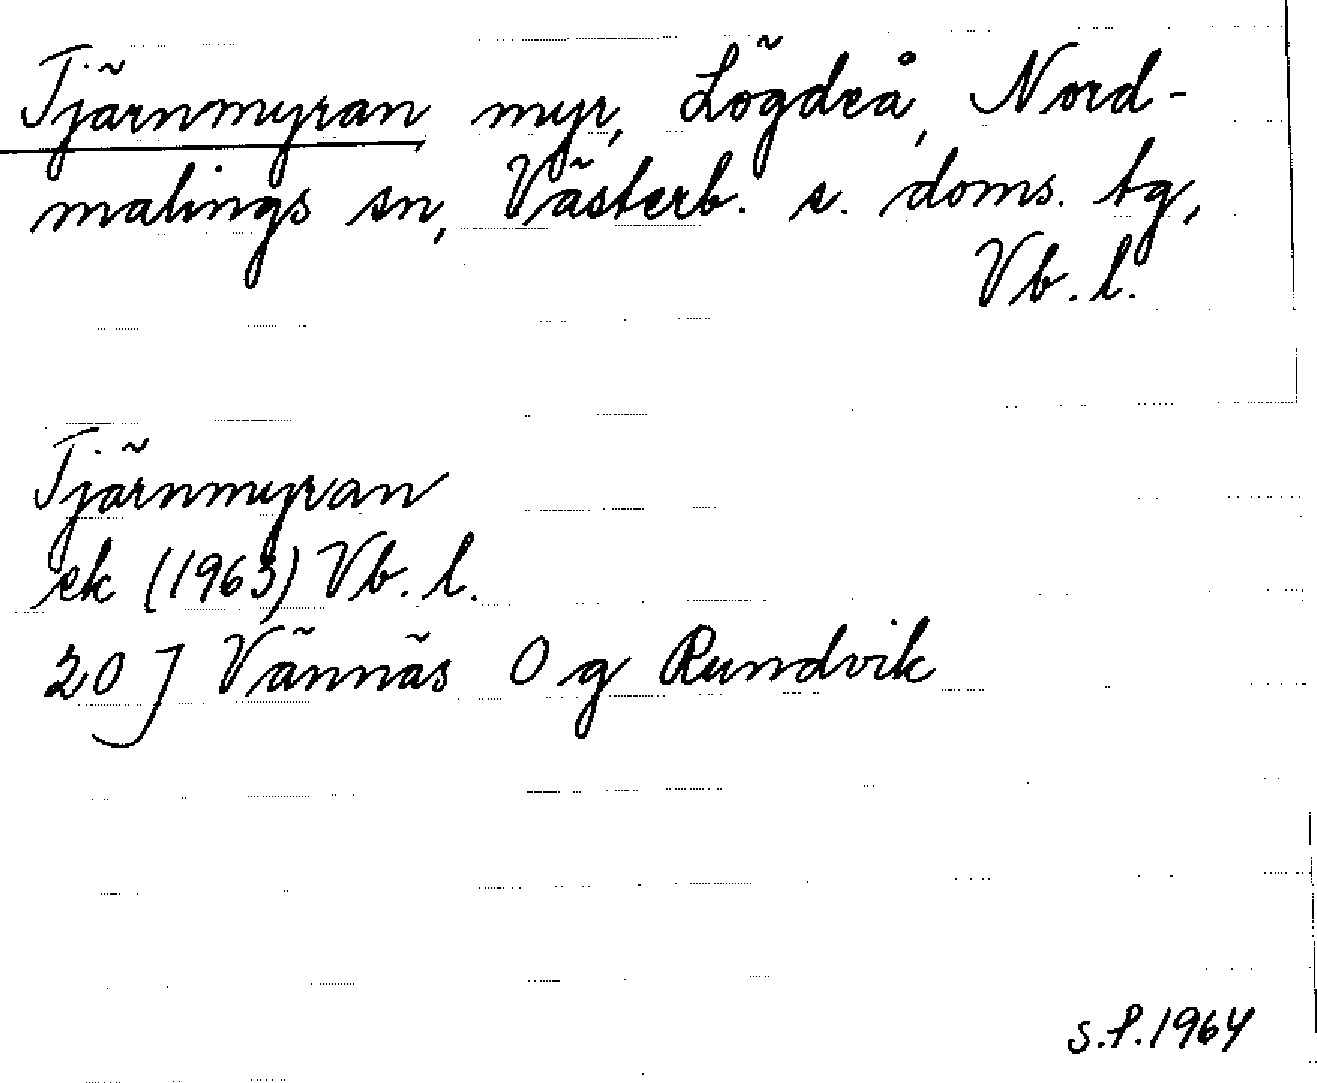 Tjärnmyran, myr, Lögdeå, Nord-
malings sn, Västerb. s. doms. tg,
Vb. l.
Tjärnmyran
ek (1963) Vb. l.
20 J Vännäs O g Rundvik
S.P. 1964